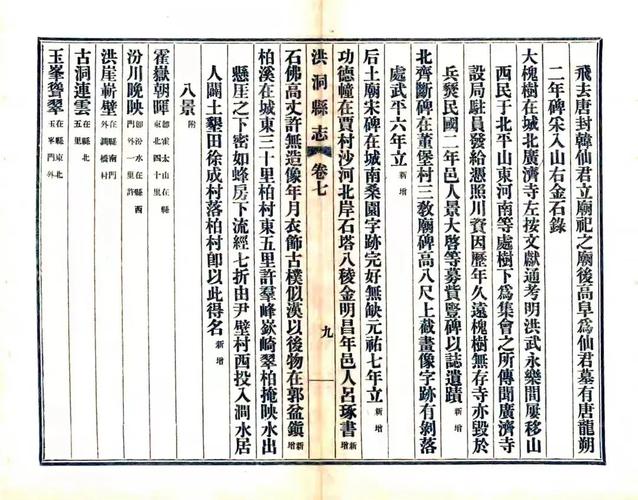 飛去唐封韓仙君立廟祀之廟後高阜爲仙君墓有唐龍朔
二年碑采入山右金石錄
大槐樹在城北廣濟寺左按文獻通考明洪武永樂間屢移山
西民于北平山東河南等處樹下爲集會之所傳聞廣濟寺
設局駐員發給憑照川資因歷年久遠槐樹無存寺亦毀於
兵燹民國二年邑人景大啓等募貲豎碑以誌遺蹟新增
北齊斷碑在董堡村三敎廟碑高八尺上截畫像字跡有剝落
處武平六年立新增
后土廟宋碑在城南桑園字跡完好無缺元祐七年立新增
功德幢在賈村沙河北岸石塔八稜金明昌年邑人呂琢書新增
洪洞縣志 卷七 九
石佛高丈許無造像年月衣飾古樸似漢以後物在郭盆鎭新增
柏溪在城東三十里柏村東五里許羣峰嶔崎翠柏掩映水出
懸厓之下密如蜂房下流經七折由尹壁村西投入澗水居
人闢土墾田徐成村落柏村卽以此得名新增
八景附
霍嶽朝暉卽霍太山在縣東北四十里
汾川晚映卽汾水在縣西門外一里許
洪崖嶄壁在縣南門外澗橋村
古洞連雲在縣北五里
玉峯聳翠在縣東北玉峯門外